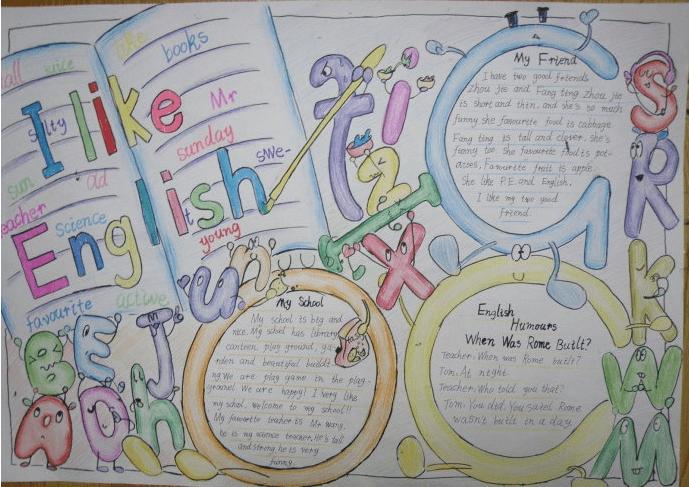 I like
English
tall
nice
like
books
salty
Mr
sunday
sun
old
swe-
teacher
science
it
young
favourite
active
My Friend
I have two good friends
Zhou jie and Fang ting Zhou jie
is short and thin. and she's so much
funny she favourite food is cabbage.
Fang ting is tall and clever. she's
funny too. She favourite food is pot-
atoes, Favourite fruit is apple.
She like P.E. and English.
I like my two good
friend.
My School
My school is big and
nice. My school has library
canteen play ground, ga-
rden and beautiful buildi
ng. We are play game in the play-
ground. We are happy! I very like
my school. welcome to my school!!
My favourite teacher is Mr wang.
he is my science teacher. He's tall
and strong, he is very
funny.
English
Humours
When Was Rome Built?
Teacher: When was Rome built?
Tom: At night.
Teacher: Who told you that?
Tom: You did. You said Rome
wasn't built in a day.
t
i
z
I
X
u
n
S
R
K
W
M
B
E
J
A
O
h